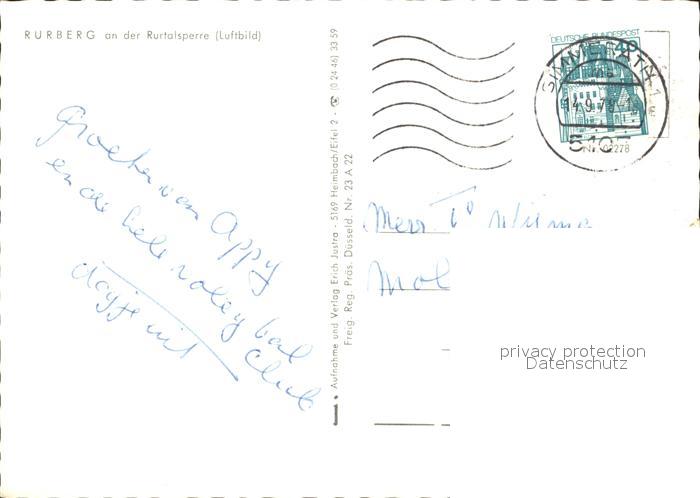 RURBERG an der Rurtalsperre (Luftbild)
Groeten van Appy
en de hele voley bal
club
dagje uit
Aufnahme und Verlag Erich Justra - 5169 Heimbach/Eifel 2 - ☎ (0 24 46) 33 59
Freig. Reg. Präs. Düsseld. Nr. 23 A 22
DEUTSCHE BUNDESPOST
40
SIMMERATH 1
14.9.7
Mol
privacy protection
Datenschutz